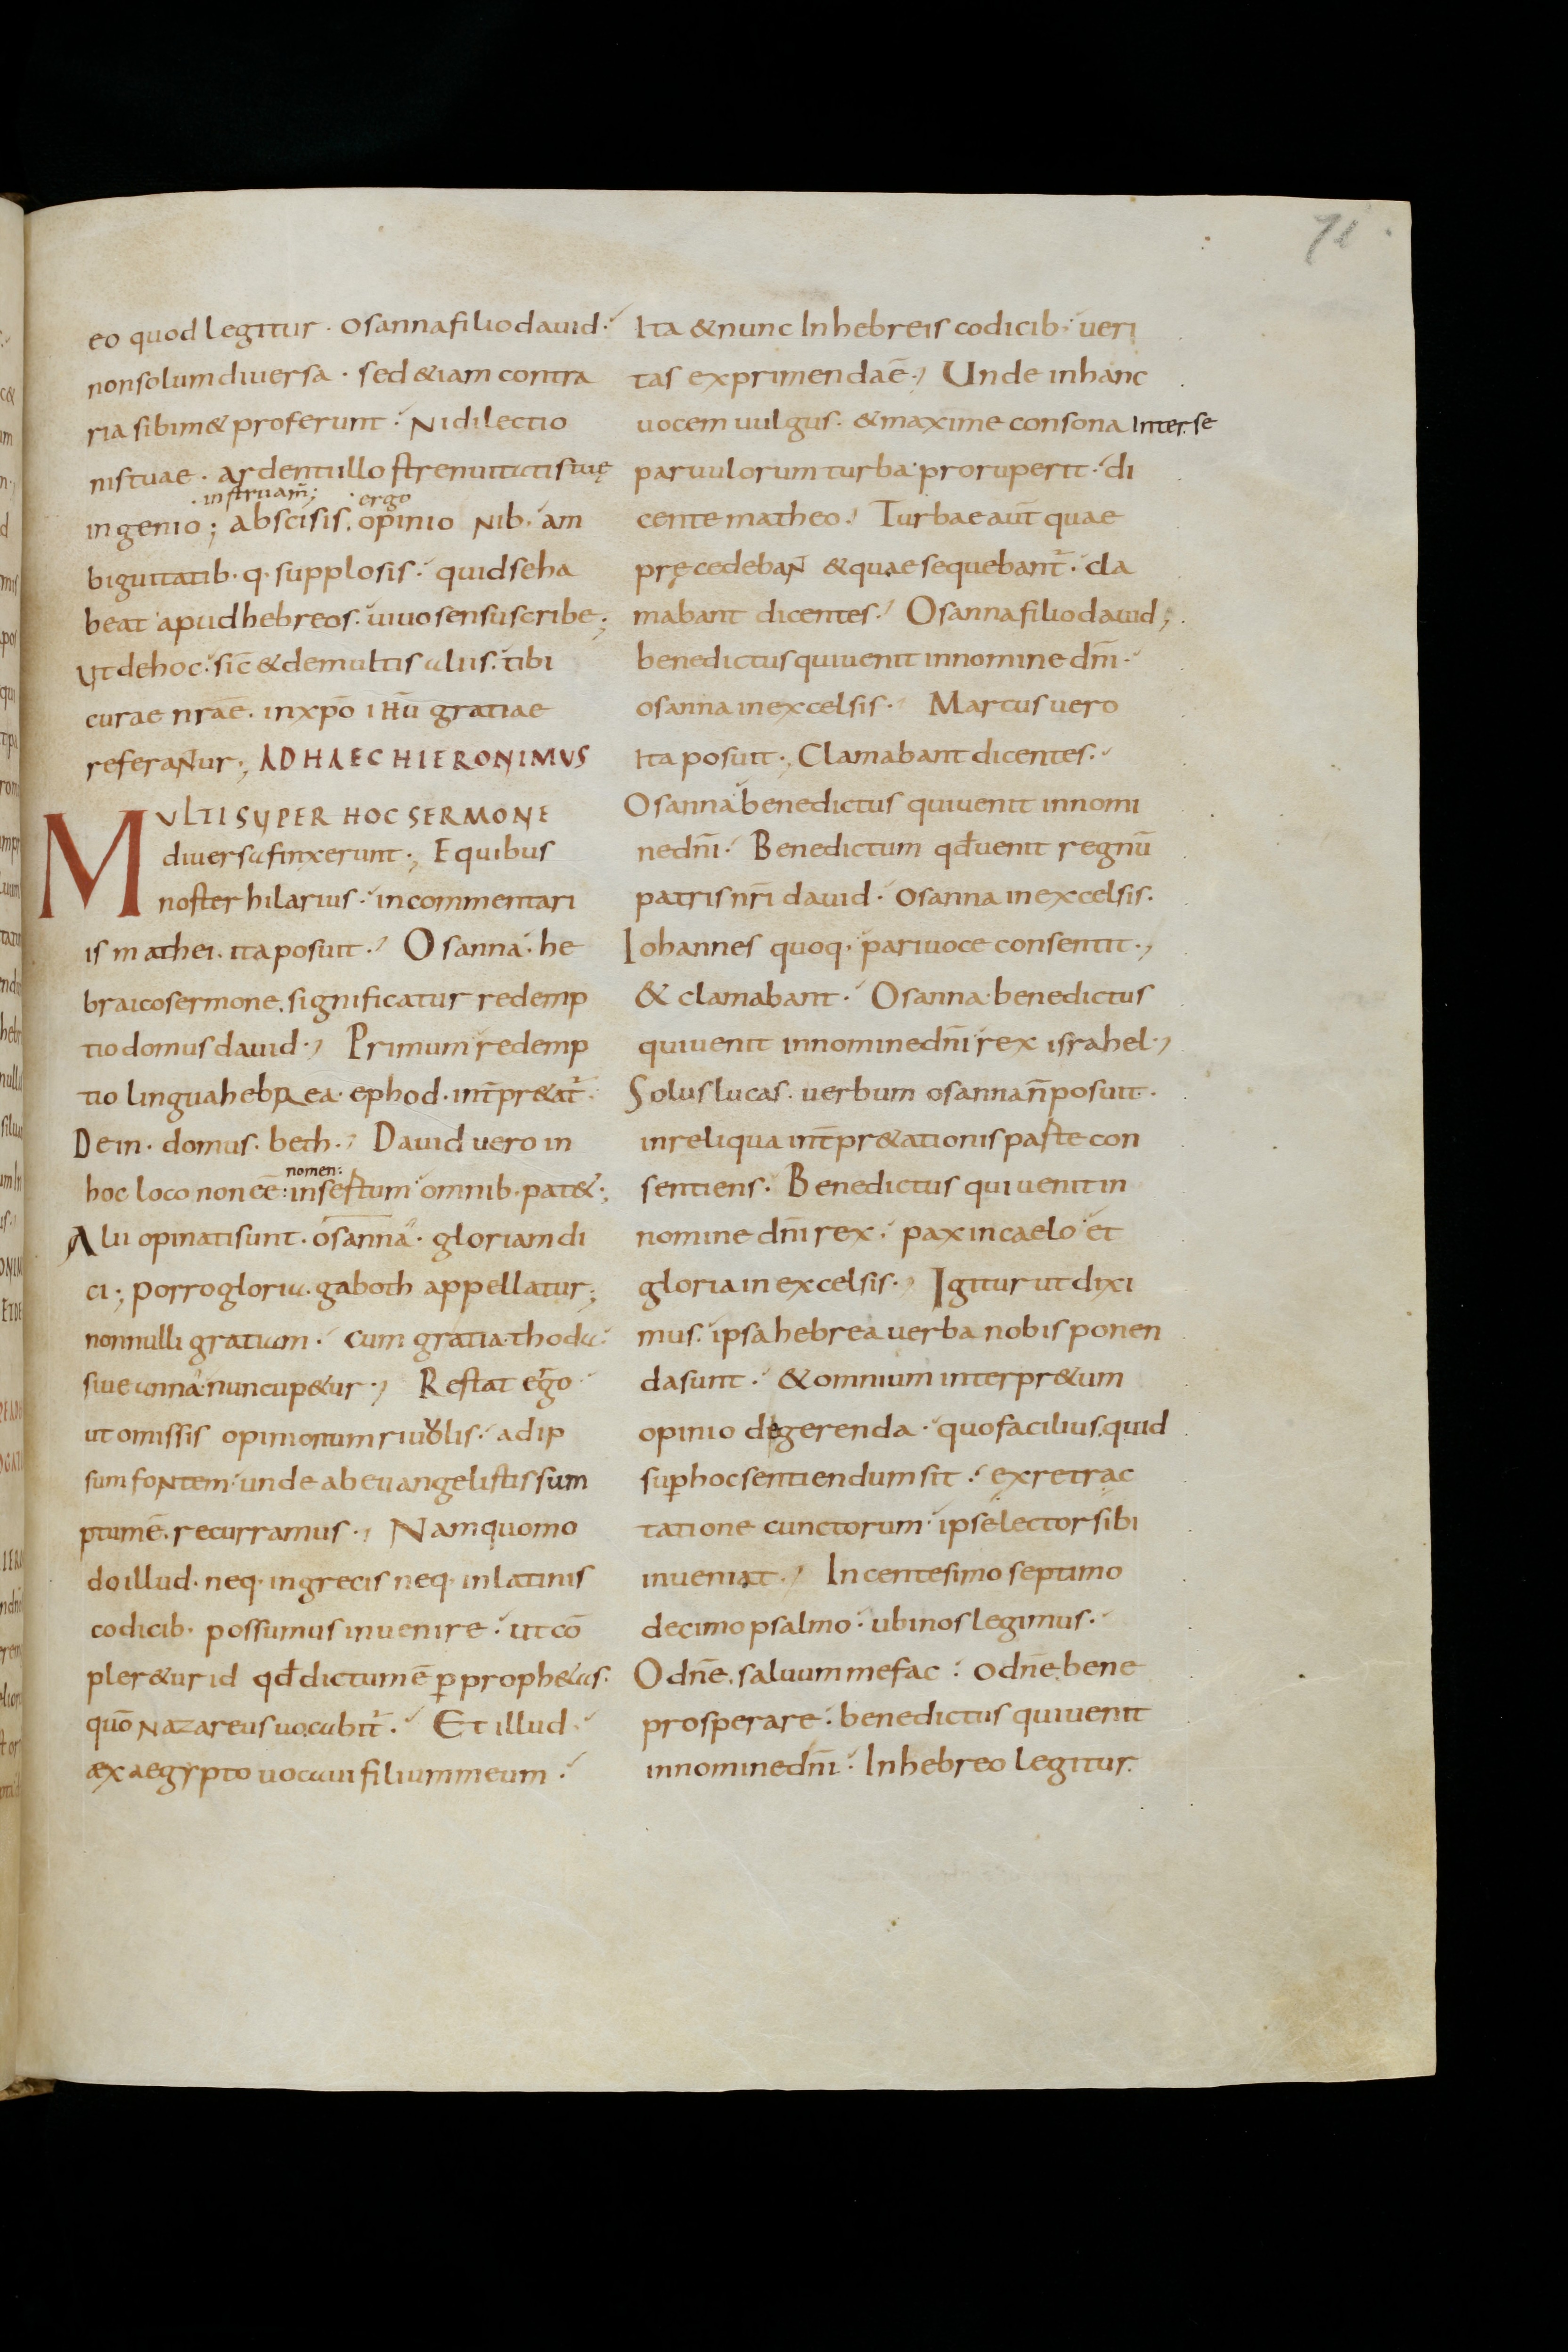 71
eo quod legitur · osanna filio dauid·
non solum diuersa · sed &iam contra
ria sibim& proferunt · Ni dilectio
nis tuae · ardenti illo strenuitatis tuę
· instruam̄; · ergo
ingenio; abscisis. opinio Nib· am
biguitatib· q· supplosis· quid se ha
beat apud hebreos· uiuo sensu scribe;
Ut de hoc· sic̄ & de multis aliis· tibi
curae nrae̅· in xp̄o ihū gratiae
referaNur·, AD HAEC HIERONIMUS
MULTI SUPER HOC SERMONE
diuersa finxerunt·, E quibus
noster hilarius· in commentari
is mathei· ita posuit· Osanna· he
braico sermone. significatur redemp
tio domus dauid·, Primum redemp
tio lingua hebrea· ephod· int̄pr&at̄·
Dein· domus· beth·, Dauid uero in
nomen:
hoc loco non eē: insertum omnib· pat&·,
Alii opinati sunt· osanna· gloriam di
ci; porro gloria· gaboth appellatur;
nonnulli gratiam· cum gratia· thoda·
siue anna· nuncup&ur·, Restat ergo
ut omissis opinionum riuolis· ad ip
sum foNtem· unde ab euangelistis sum
ptum ē· recurramus·, Nam quomo
do illud· neq· in grecis neq· in latinis
codicib· possumus inuenire· ut cō
pler&ur id qđ dictum ē p̱ proph&as·
quō Nazareus uocabit̄· Et illud·
æx aegypto uocaui filium meum·
Ita & nunc In hebreis codicib· ueri
tas exprimenda ē·, Unde in hanc
uocem uulgus· & maxime consona inter se
paruulorum turba· proruperit· di
cente matheo· Turbae aut̄ quae
pręcedebaN & quae sequebant̄· cla
mabant dicentes· Osanna filio dauid;
benedictus qui uenit in nomine dn̄i·
osanna in excelsis· Marcus uero
Ita posuit·, Clamabant dicentes·
Osanna benedictus qui uenit in nomi
ne dn̄i· Benedictum qđ uenit regnū
patris nr̄i dauid· osanna in excelsis·
Iohannes quoq· pari uoce consentit·,
& clamabant· Osanna· benedictus
qui uenit in nomine dn̄i rex israhel·,
Solus lucas· uerbum osanna n̄ posuit·
in reliqua int̄pr&ationis parte con
sentiens· Benedictus qui uenit in
nomine dn̄i rex· pax in caelo et
gloria in excelsis·, Igitur ut dixi
mus· ipsa hebrea uerba nobis ponen
da sunt· & omnium interpr&um
opinio degerenda· quo facilius. quid
sup̱ hoc sentiendum sit· ex retrac
tatione cunctorum· ipse lector sibi
inueniat·, In centesimo septimo
decimo psalmo· ubi nos legimus·
O dn̄e, saluum me fac· o dn̄e, bene
prosperare· benedictus qui uenit
in nomine dn̄i· In hebreo legitur·